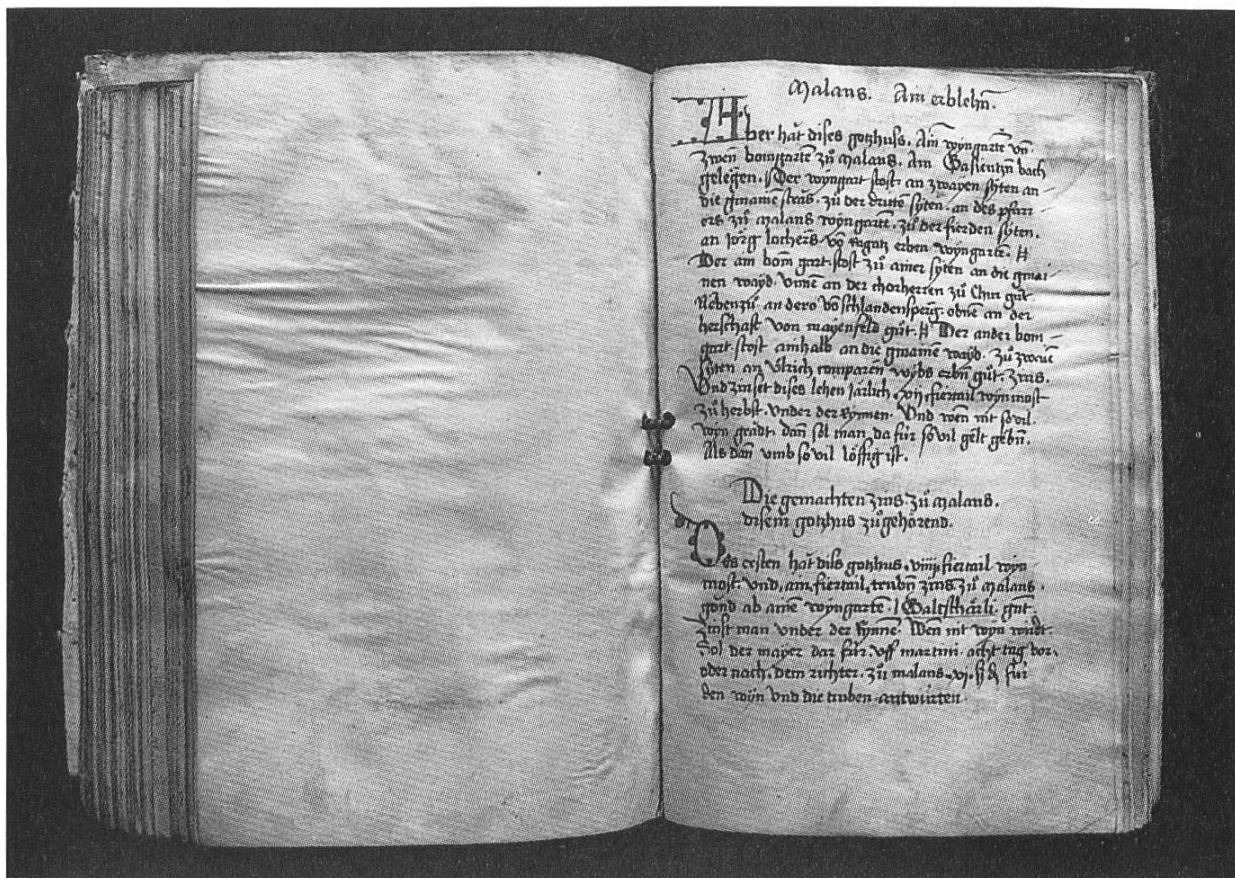 Malans. Ain erblehn̄.
Aber hăt dises gotzhuss. Ain wyngartē vn̄.
zwen bomgartē zů Malans. Am Gasientzn̄ bach
gelegen. Der wyngart stost an zwayen syten an
die gmainē străs. zů der drittē syten. an des pfarr
ers zů Malans wyngartē. zů der fierden syten.
an Jőrg lochers võ ragatz erben wyngartē.
Der ain bom̄ gart. stost zů ainer syten an die gmai
nen wayd. vnnē an der chorherren zů Chur gůt
Nebenzů an dero võ schlandensperg. obnē an der
herschaft von mayenfeld gůt. Der ander bom
gart. stost ainhalb an die gmainē wayd. zů zwaiē
syten an Vlrich comparen wybs erbn̄ gůt. zins.
Vnd zinset dises lehen Järlich. fiertail wyn most
zů herbst. vnder der Rynnen. Vnd wen̄ nit so vil
wyn gradt. dan̄ sol man. da fűr so vil gelt gebn̄.
Als dan̄ vmb so vil lőffig ist.
Die gemachten zins. zů Malans.
disem gotzhus zůgehőrend.
Des ersten hăt dis gotzhus. viiij fiertail wyn
most. vnd. ain. fiertail. trubn̄ zins. zů Malans.
gond ab ainē wyngartē. Galtschärli. gnt̄.
zinst man vnder der Rynnē. Wen̄ nit wyn wirdt.
Sol der mayer dar fűr. vff martini. acht tag vor.
oder nach. dem richter. zů malans. vj. ß ₰ fűr
den wyn vnd die truben antwürten.